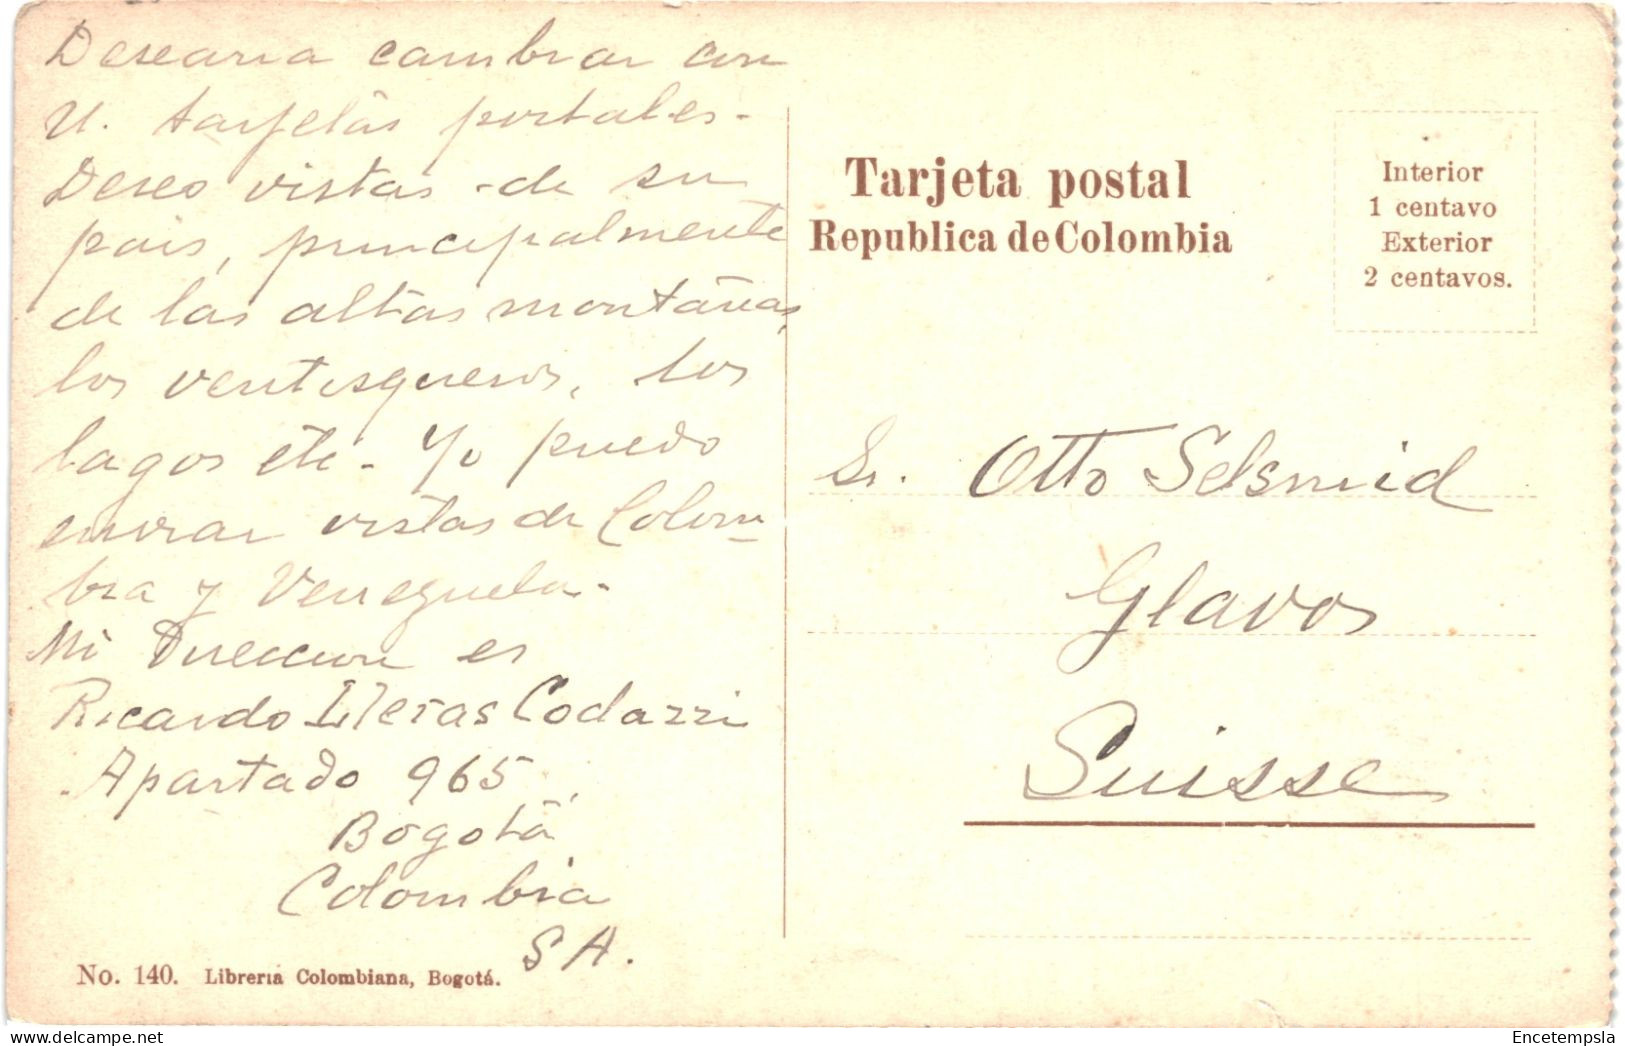 Desearia cambiar con
U. tarjetas postales-
Deseo vistas de su
pais, principalmente
de las altas montañas,
los ventisqueros, los
lagos etc- Yo puedo
enviar vistas de Colom-
bia y Venezuela-
Mi Direccion es
Ricardo Lleras Codazzi
Apartado 965,
Bogotá
Colombia
S A.
No. 140. Libreria Colombiana, Bogotá.
Tarjeta postal
Republica de Colombia
Interior
1 centavo
Exterior
2 centavos.
Sr. Otto Selsmid
Glavos
Suisse
Encetempsla